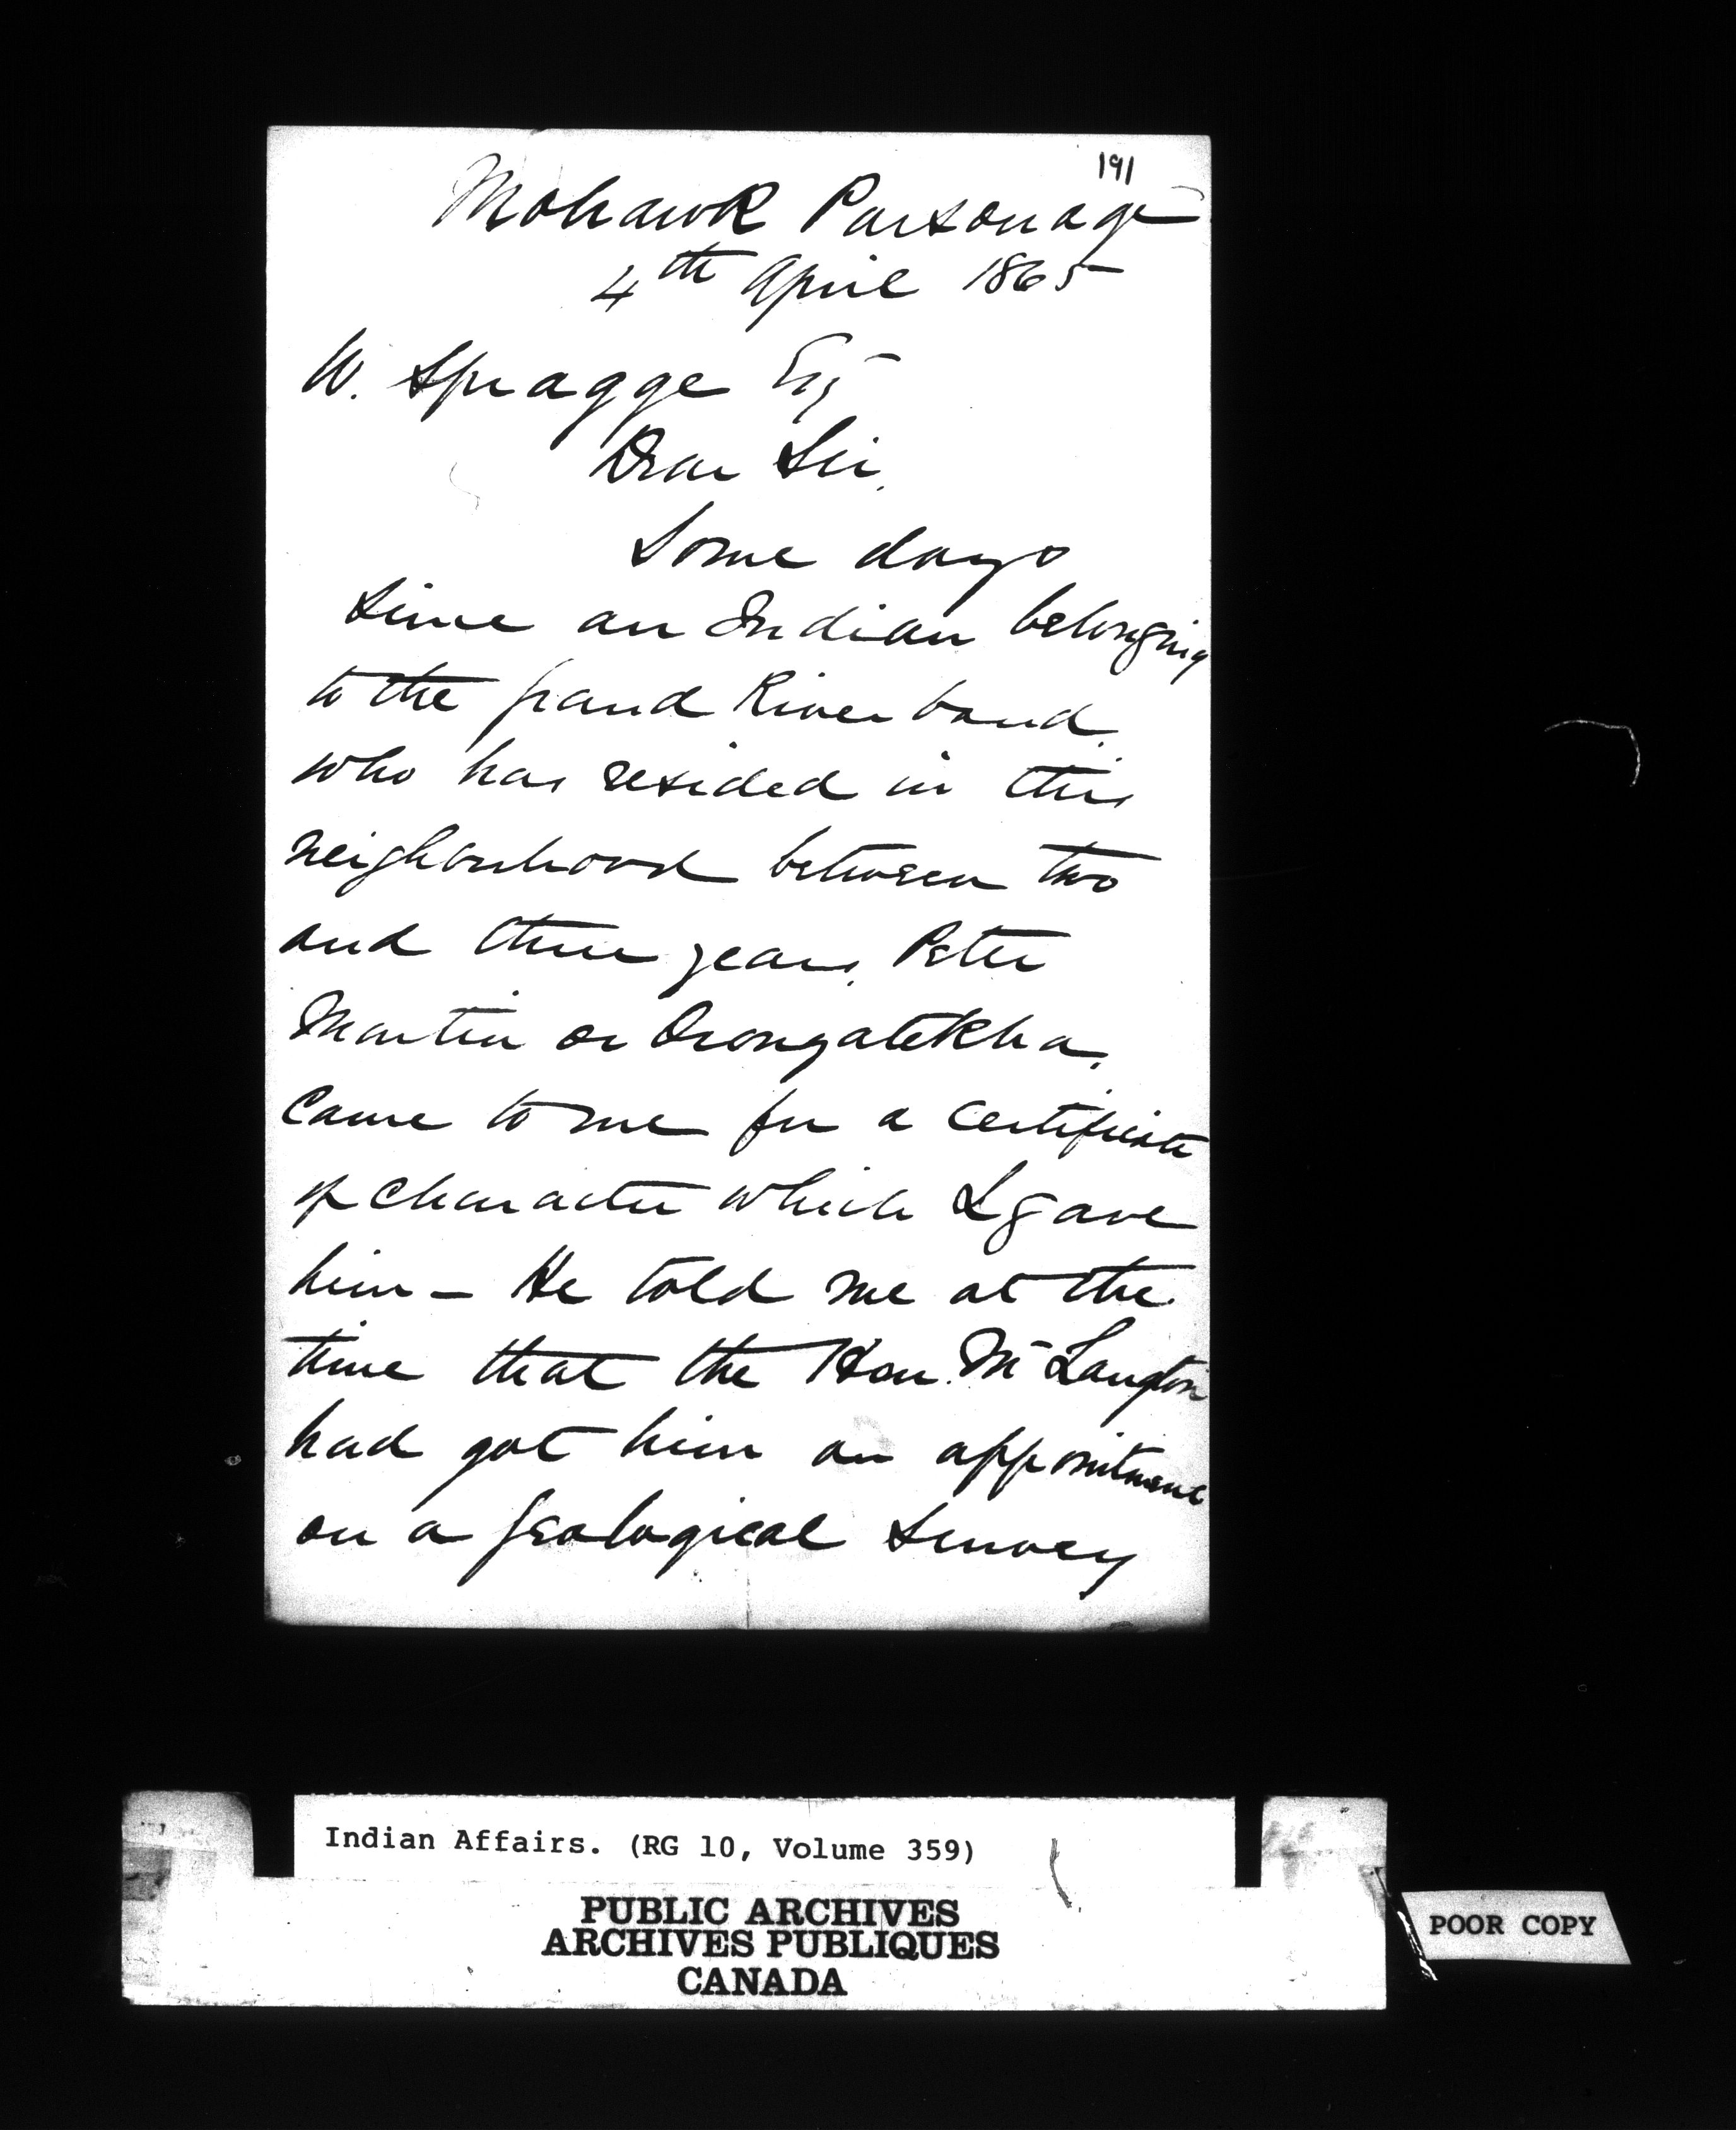 191
Mohawk Parsonage
4th April 1865
W. Spragge Esq
Dear Sir,
Some days
since an Indian belonging
to the grand River band
who has resided in this
neighbourhood between two
and three years, Peter
Martin or Oronyatekha,
came to me for a certificate
of character which I gave
him – He told me at the
time that the Hon. Mr Langton
had got him an appointment
on a geological survey
Indian Affairs. (RG 10, Volume 359)
PUBLIC ARCHIVES
ARCHIVES PUBLIQUES
CANADA
POOR COPY